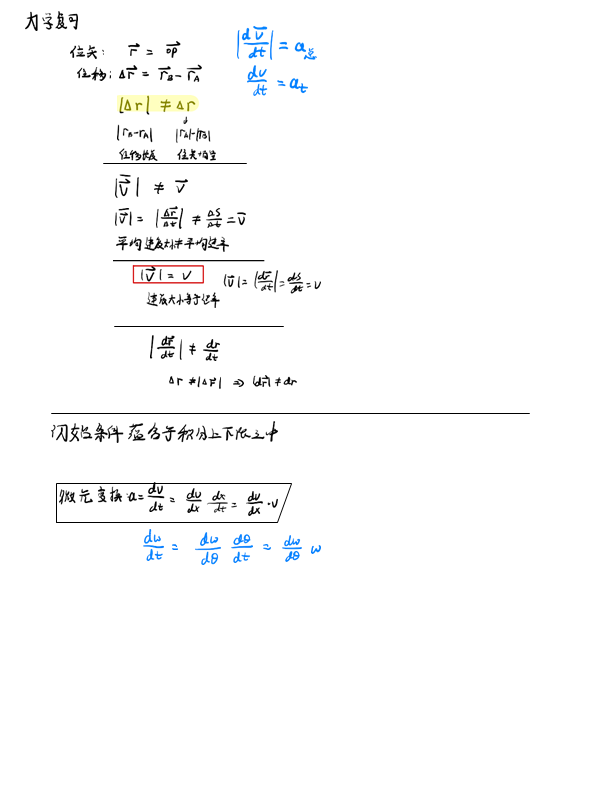 力学复习
位矢: r⃗ = op⃗
位移: Δr⃗ = r⃗_B - r⃗_A
|dv⃗/dt| = a总
dv/dt = a_t
|Δr⃗| ≠ Δr
|r_B-r_A| |r_A|-|r_B|
位移长度 位矢增量
|v⃗| ≠ v̅
|v̅| = |Δr⃗/Δt| ≠ Δs/Δt = v̅
平均速度大小≠平均速率
|v⃗| = v |v⃗| = |dr⃗/dt| = ds/dt = v
速度大小等于速率
|dr⃗/dt| ≠ dr/dt
Δr ≠ |Δr⃗| ⇒ |dr⃗| ≠ dr
初始条件蕴含于积分上下限之中
微元变换: a = dv/dt = dv/dx dx/dt = dv/dx · v
dω/dt = dω/dθ dθ/dt = dω/dθ ω